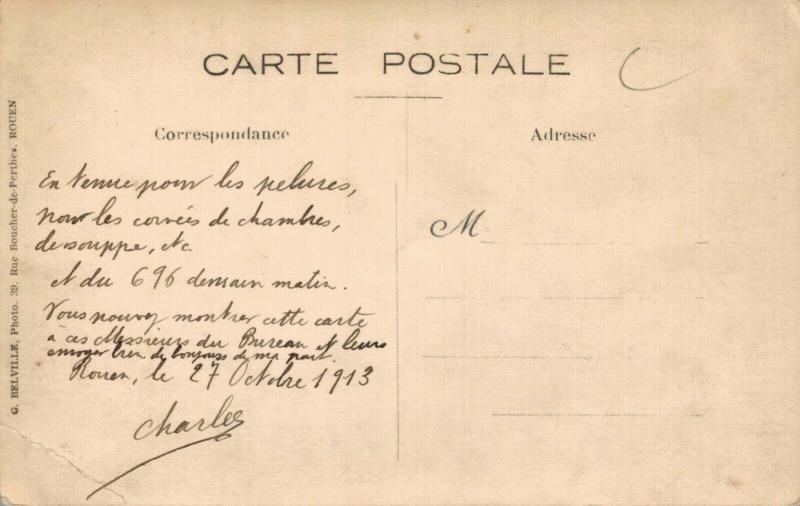 CARTE POSTALE
Correspondance
Adresse
En tenue pour les pelures,
pour les corvées de chambres,
de souppe, etc
et du 696 demain matin.
Vous pouvez montrer cette carte
à ces Messieurs du Bureau et leurs
envoyer bien de bonjours de ma part.
Rouen, le 27 Octobre 1913
Charles
M
G. BELVILLE, Photo. 39, Rue Boucher-de-Perthes, ROUEN